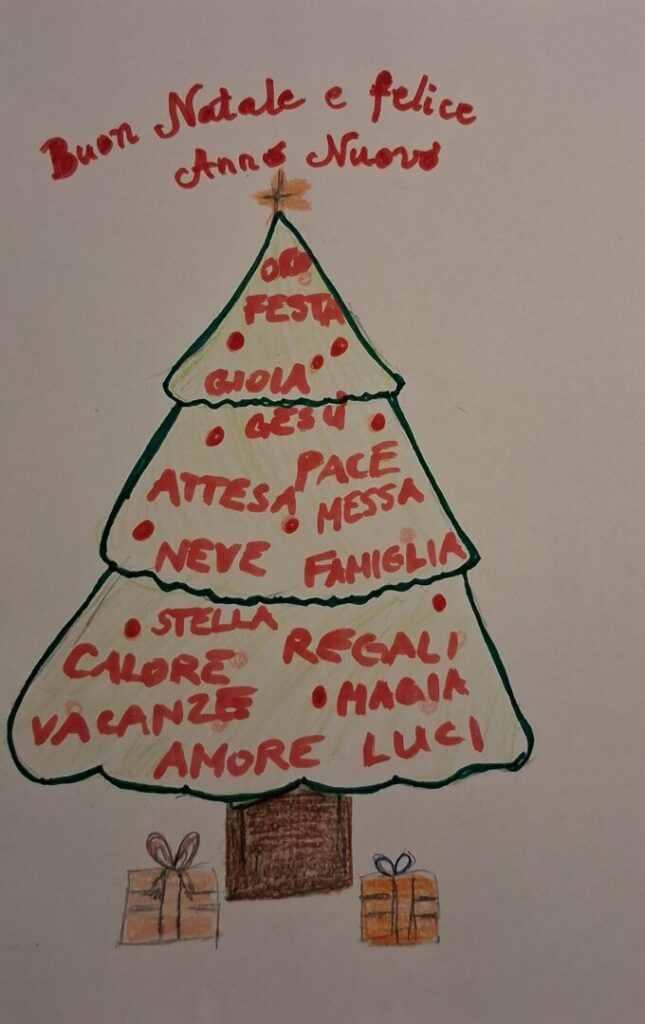 Buon Natale e felice
Anno Nuovo
ORO
FESTA
GIOIA
GESÚ
PACE
ATTESA
MESSA
NEVE
FAMIGLIA
STELLA
REGALI
CALORE
MAGIA
VACANZE
AMORE
LUCI